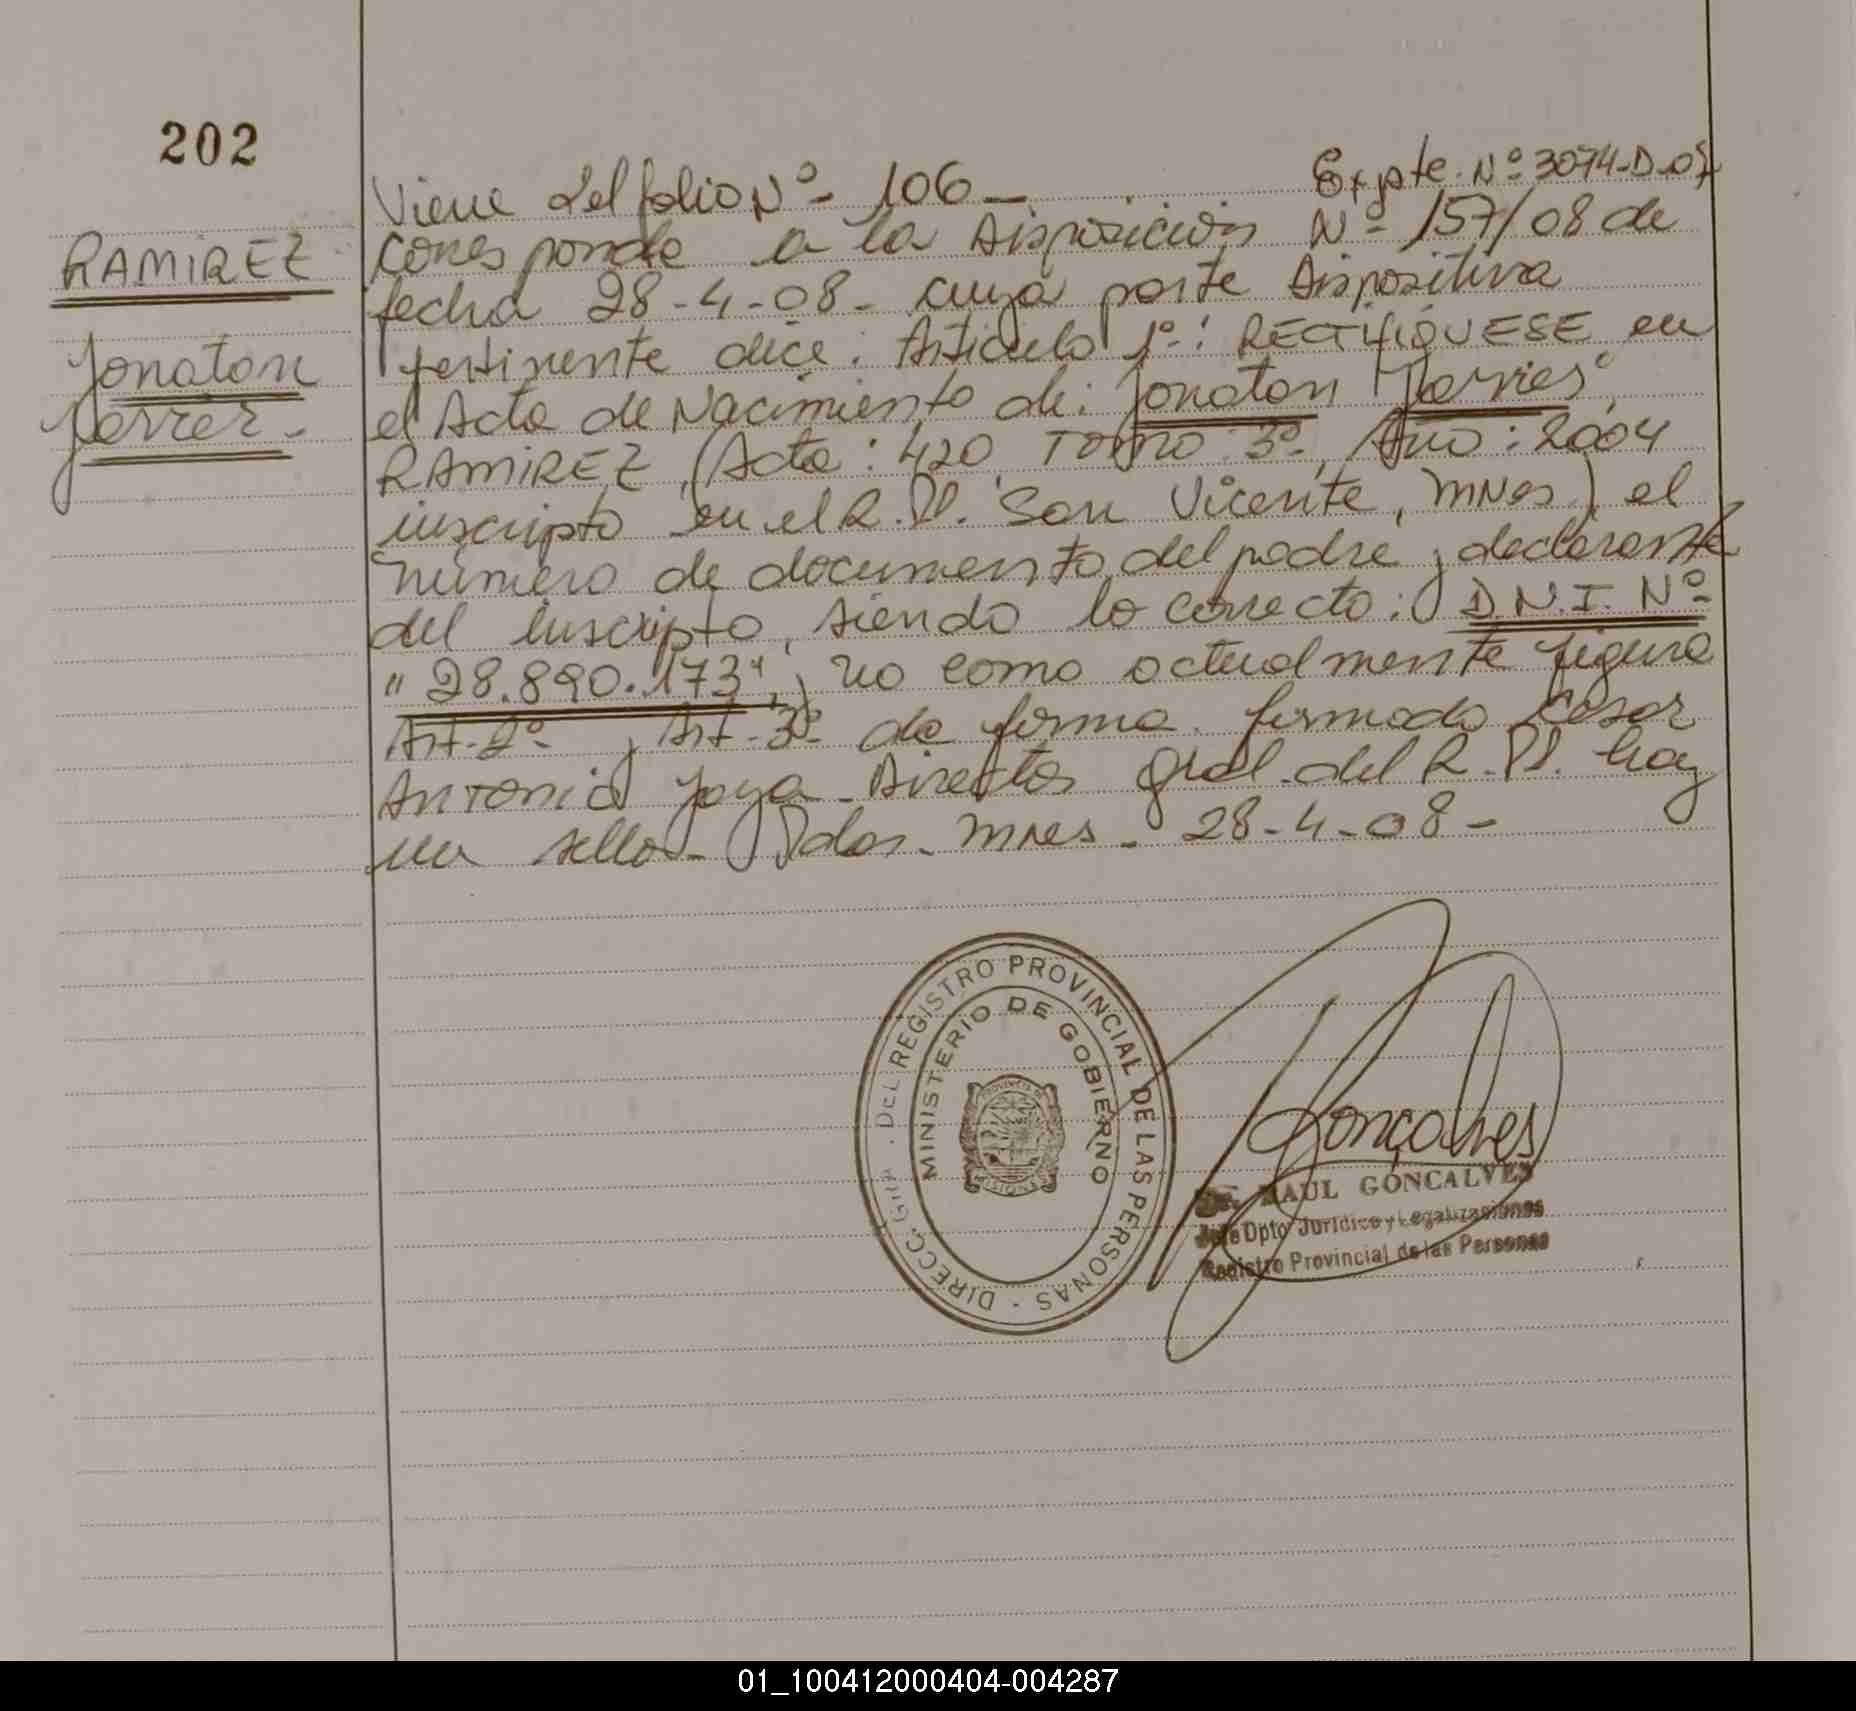 202
Viene del folio Nº- 106- Expte. Nº 3074-D-07
RAMIREZ
Jonatan
Javier-
Corresponde a la Disposición Nº- 157/08 de
fecha 28-4-08- cuya parte Dispositiva
pertinente dice: Articulo 1º: RECTIFIQUESE en
el Acta de Nacimiento de: Jonatan Javier
RAMIREZ (Acta: 420 Tomo: 3º, Año: 2004
inscripto en el R.P. San Vicente, Mnes) el
número de documento del padre y declarante
del inscripto, siendo lo correcto: D.N.I. Nº
"28.890.173", y no como actualmente figura
Art-2º- y Art-3º de forma. firmado Cesar
Antonio Joya-Director Gral. del R.P. hay
un sello- Pdas. Mnes- 28-4-08-
DIRECC. GRAL. DEL REGISTRO PROVINCIAL DE LAS PERSONAS
MINISTERIO DE GOBIERNO
PROVINCIA DE
MISIONES
Gonçalves
RAUL GONCALVES
Jefe Dpto Jurídico y Legalizaciones
Registro Provincial de las Personas
01_100412000404-004287